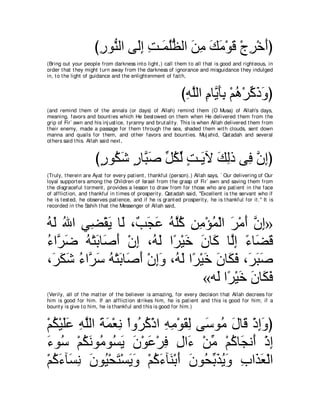 (أَخْرِجْ قَوْمَكَ مِنَ الظُّلُمَـتِ إِلَى النُّورِ)
(Bring out your people from darkness into light,) call them to all that is good and righteous, in
order that they might turn away from the darkness of ignorance and misguidance they indulged
in, to the light of guidance and the enlightenment of faith,
(وَذَكِّرْهُمْ بِأَيَّامِ اللَّهِ)
(and remind them of the annals (or days) of Allah) remind them (O Musa) of Allah's days,
meaning, favors and bounties which He bestowed on them when He delivered them from the
grip of Fir`awn and his injustice, tyranny and brutality. This is when Allah delivered them from
their enemy, made a passage for them through the sea, shaded them with clouds, sent down
manna and quails for them, and other favors and bounties. Mujahid, Qatadah and several
others said this. Allah said next,
(إِنَّ فِى ذَلِكَ لآيَـتٍ لِّكُلِّ صَبَّارٍ شَكُورٍ)
(Truly, therein are Ayat for every patient, thankful (person).) Allah says, `Our delivering of Our
loyal supporters among the Children of Israel from the grasp of Fir`awn and saving them from
the disgraceful torment, provides a lesson to draw from for those who are patient in the face
of affliction, and thankful in times of prosperity. Qatadah said, "Excellent is the servant who if
he is tested, he observes patience, and if he is granted prosperity, he is thankful for it.'' It is
recorded in the Sahih that the Messenger of Allah said,
«إِنَّ أَمْرَ الْمُؤْمِنِ كُلَّهُ عَجَبٌ، لَا يَقْضِي اللهُ لَهُ
قَضَاءً إِلَّا كَانَ خَيْرًا لَهُ، إِنْ أَصَابَتْهُ ضَرَّاءُ
صَبَرَ، فَكَانَ خَيْرًا لَهُ، وَإِنْ أَصَابَتْهُ سَرَّاءُ شَكَرَ،
فَكَانَ خَيْرًا لَه»
(Verily, all of the matter of the believer is amazing, for every decision that Allah decrees for
him is good for him. If an affliction strikes him, he is patient and this is good for him; if a
bounty is give to him, he is thankful and this is good for him.)
(وَإِذْ قَالَ مُوسَى لِقَوْمِهِ اذْكُرُوا نِعْمَةَ اللَّهِ عَلَيْكُمْ
إِذْ أَنجَاكُمْ مِّنْ ءَالِ فِرْعَوْنَ يَسُومُونَكُمْ سُوءَ
الْعَذَابِ وَيُذَبِّحُونَ أَبْنَآءَكُمْ وَيَسْتَحْيُونَ نِسَآءَكُمْ